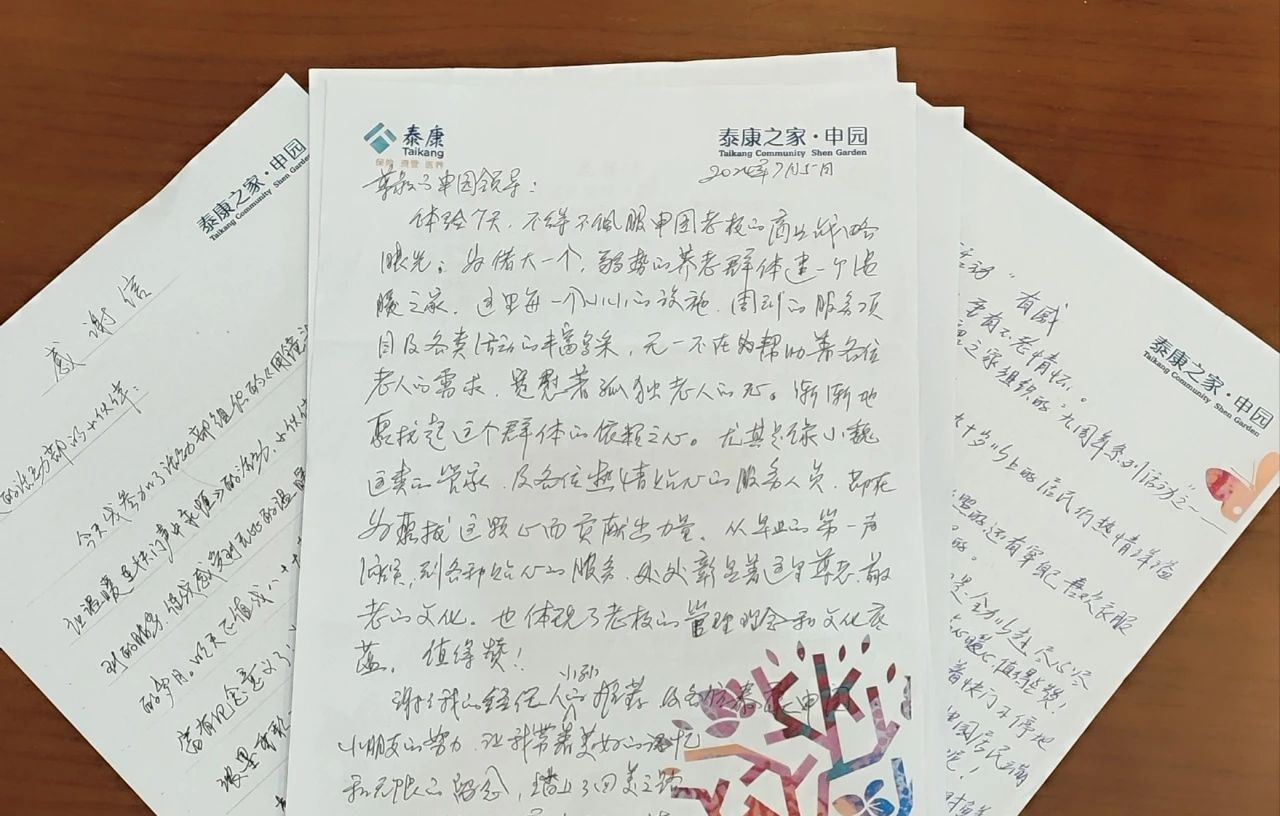 泰康
Taikang
保险 资管 医养
泰康之家·申园
Taikang Community Shen Garden
2024年7月5日
尊敬的申园领导：
体验7天，不得不佩服申园老板的商业战略
眼光。为偌大一个，弱势的养老群体建一个温
暖之家。这里每一个小小的设施，周到的服务项
目及各类活动的丰富多采，无一不在为帮助着各位
老人的需求，宽慰着孤独老人的心。渐渐地
聚拢起这个群体的依赖之心。尤其是像小魏
这类的管家，及各位热情贴心的服务人员，都在
为聚拢这颗心而贡献出力量。从早上的第一声
问候，到各种贴心的服务，处处彰显着这里尊老敬
老的文化。也体现了老板的管理理念和文化底
蕴。值得赞！
谢谢我的经纪人小孙的推荐 及各位泰康之申园
小朋友的努力，让我带着美好的记忆
和无限的留念，踏上了回美之路
泰康之家·申园
Taikang Community Shen Garden
感谢信
的活力部的小伙伴：
今天我参加了活力部组织的
让温暖连快门声中永恒》的活动，小伙伴
到的服务，值我感受到无比的温暖
的岁月。昨天已值我八十
富有纪念意义了
泰康之家·申园
Taikang Community Shen Garden
活动"有感
更有不老情怀。
之家组织的"九周年系列活动之一
九十岁以上的居民们热情洋溢
照的，还有军配喜欢衣服
的。
是全力以赴，尽心尽
值得点赞！
着快门不停地
申园居民满